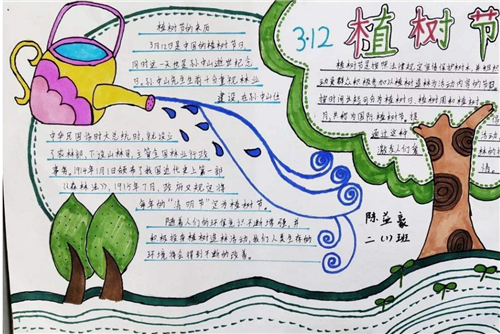 植树节的来历
3月12日是中国的植树节日,
同时这一天也是孙中山逝世纪念
日。孙中山先生生前十分重视林业
建设。在孙中山任
中华民国临时大总统时,就设立
了农林部,下设山林司,主管全国林业行政
事务。1914年11月颁布了我国近代史上第一部
《森林法》。1915年7月,政府又规定将
每年的“清明节”定为植树节。
随着人们的环保意识不断增强,并
积极投身植树造林活动,我们人类生存的
环境将会得到不断的改善。
3.12
植树节
植树节是按照法律规定宣传保护树木,并组织
动员群众积极参加以植树造林为活动内容的节日
通过这种
激发人们爱
陈益豪
二(1)班